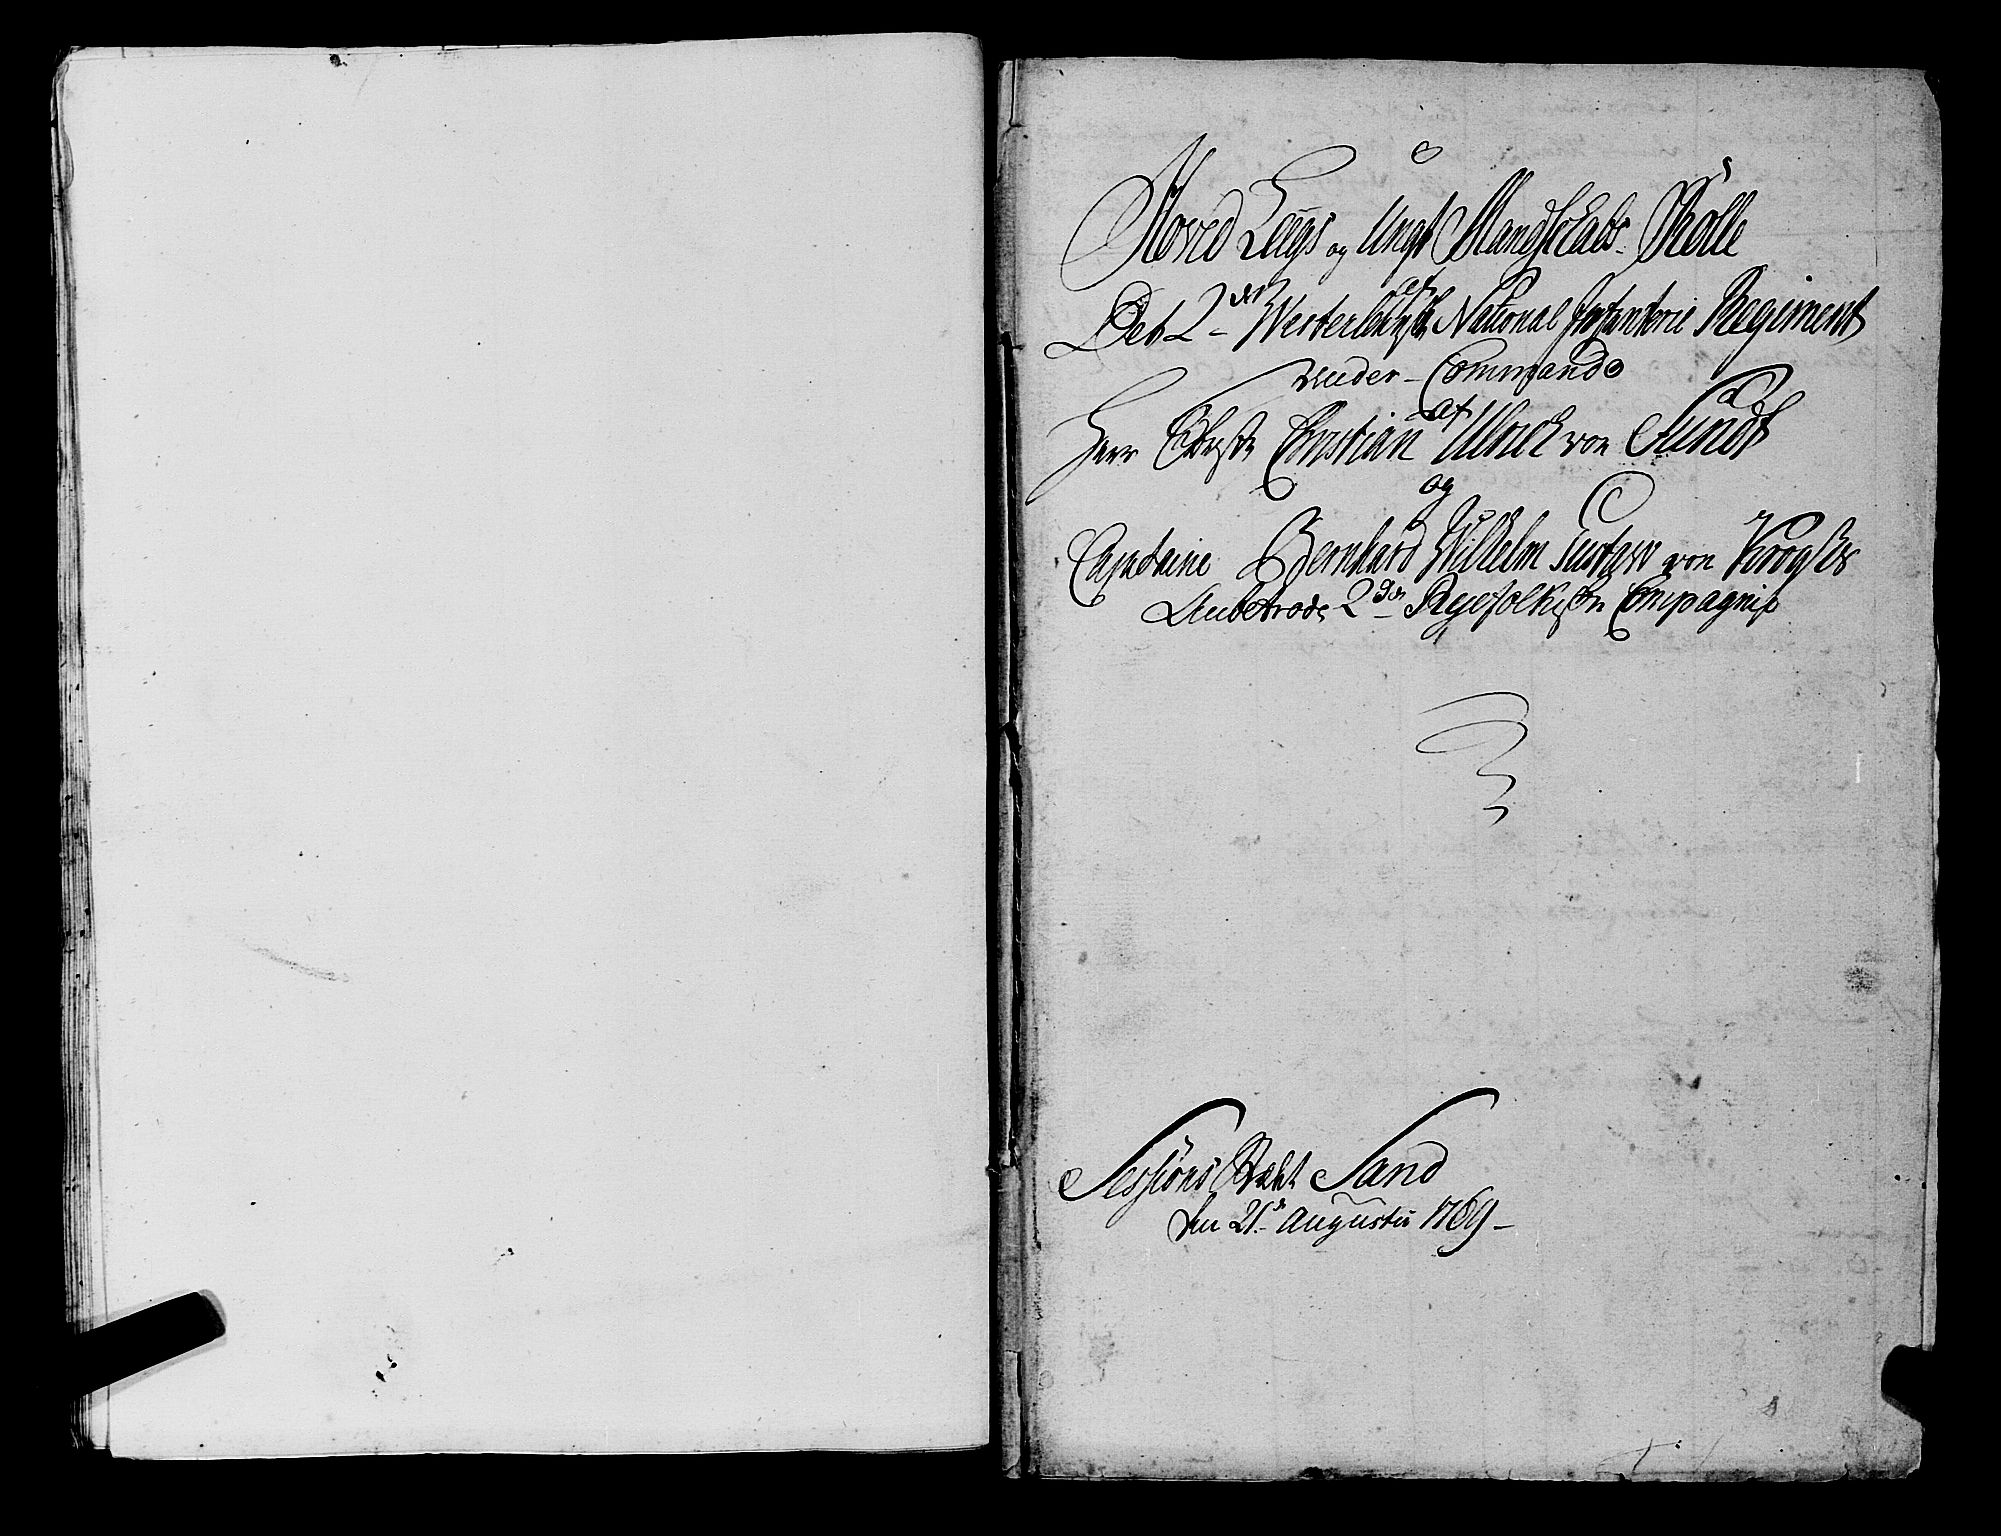 Hoved Lægs og Ungt Mandskabs Rolle
af
Det 2det Westerlehnske National Infanterie Regiment
under Commando
af
Herr Obriste Christian Ulrich von Sundt
og
Capitaine Bernhard Wilhelm Gustaw von Krogs
Anbetrode 2den Ryefolkske Compagnie
Sessions Stædet Sand
den 21de Augustii 1769